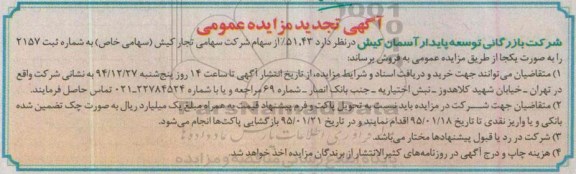 آگهی تجدید مزایده عمومی
شرکت بازرگانی توسعه پایدار آسمان کیش در نظر دارد ۵۱/۴۳٪ از سهام شرکت سهامی تجار کیش (سهامی خاص) به شماره ثبت ۲۱۵۷
را به صورت یکجا از طریق مزایده عمومی به فروش برساند:
۱) متقاضیان می‌توانند جهت خرید و دریافت اسناد و شرایط مزایده، از تاریخ انتشار آگهی تا ساعت ۱۴ روز پنج‌شنبه ۹۴/۱۲/۲۷ به نشانی شرکت واقع
در تهران - خیابان شهید کلاهدوز - نبش اختیاریه - جنب بانک انصار - شماره ۶۹ مراجعه و یا با شماره ۲۲۷۸۴۵۲۴-۰۲۱ تماس حاصل فرمایند.
۲) متقاضیان جهت شرکت در مزایده باید نسبت به تحویل پاکت و فرم پیشنهاد قیمت به همراه مبلغ یک میلیارد ریال به صورت چک تضمین شده
بانکی و یا واریز نقدی تا تاریخ ۹۵/۰۱/۱۸ اقدام نمایند و در تاریخ ۹۵/۰۱/۲۱ بازگشایی پاکت‌ها انجام می‌شود.
۳) شرکت در رد یا قبول پیشنهادها مختار می‌باشد.
۴) هزینه چاپ و درج آگهی در روزنامه‌های کثیرالانتشار از برندگان مزایده اخذ خواهد شد.